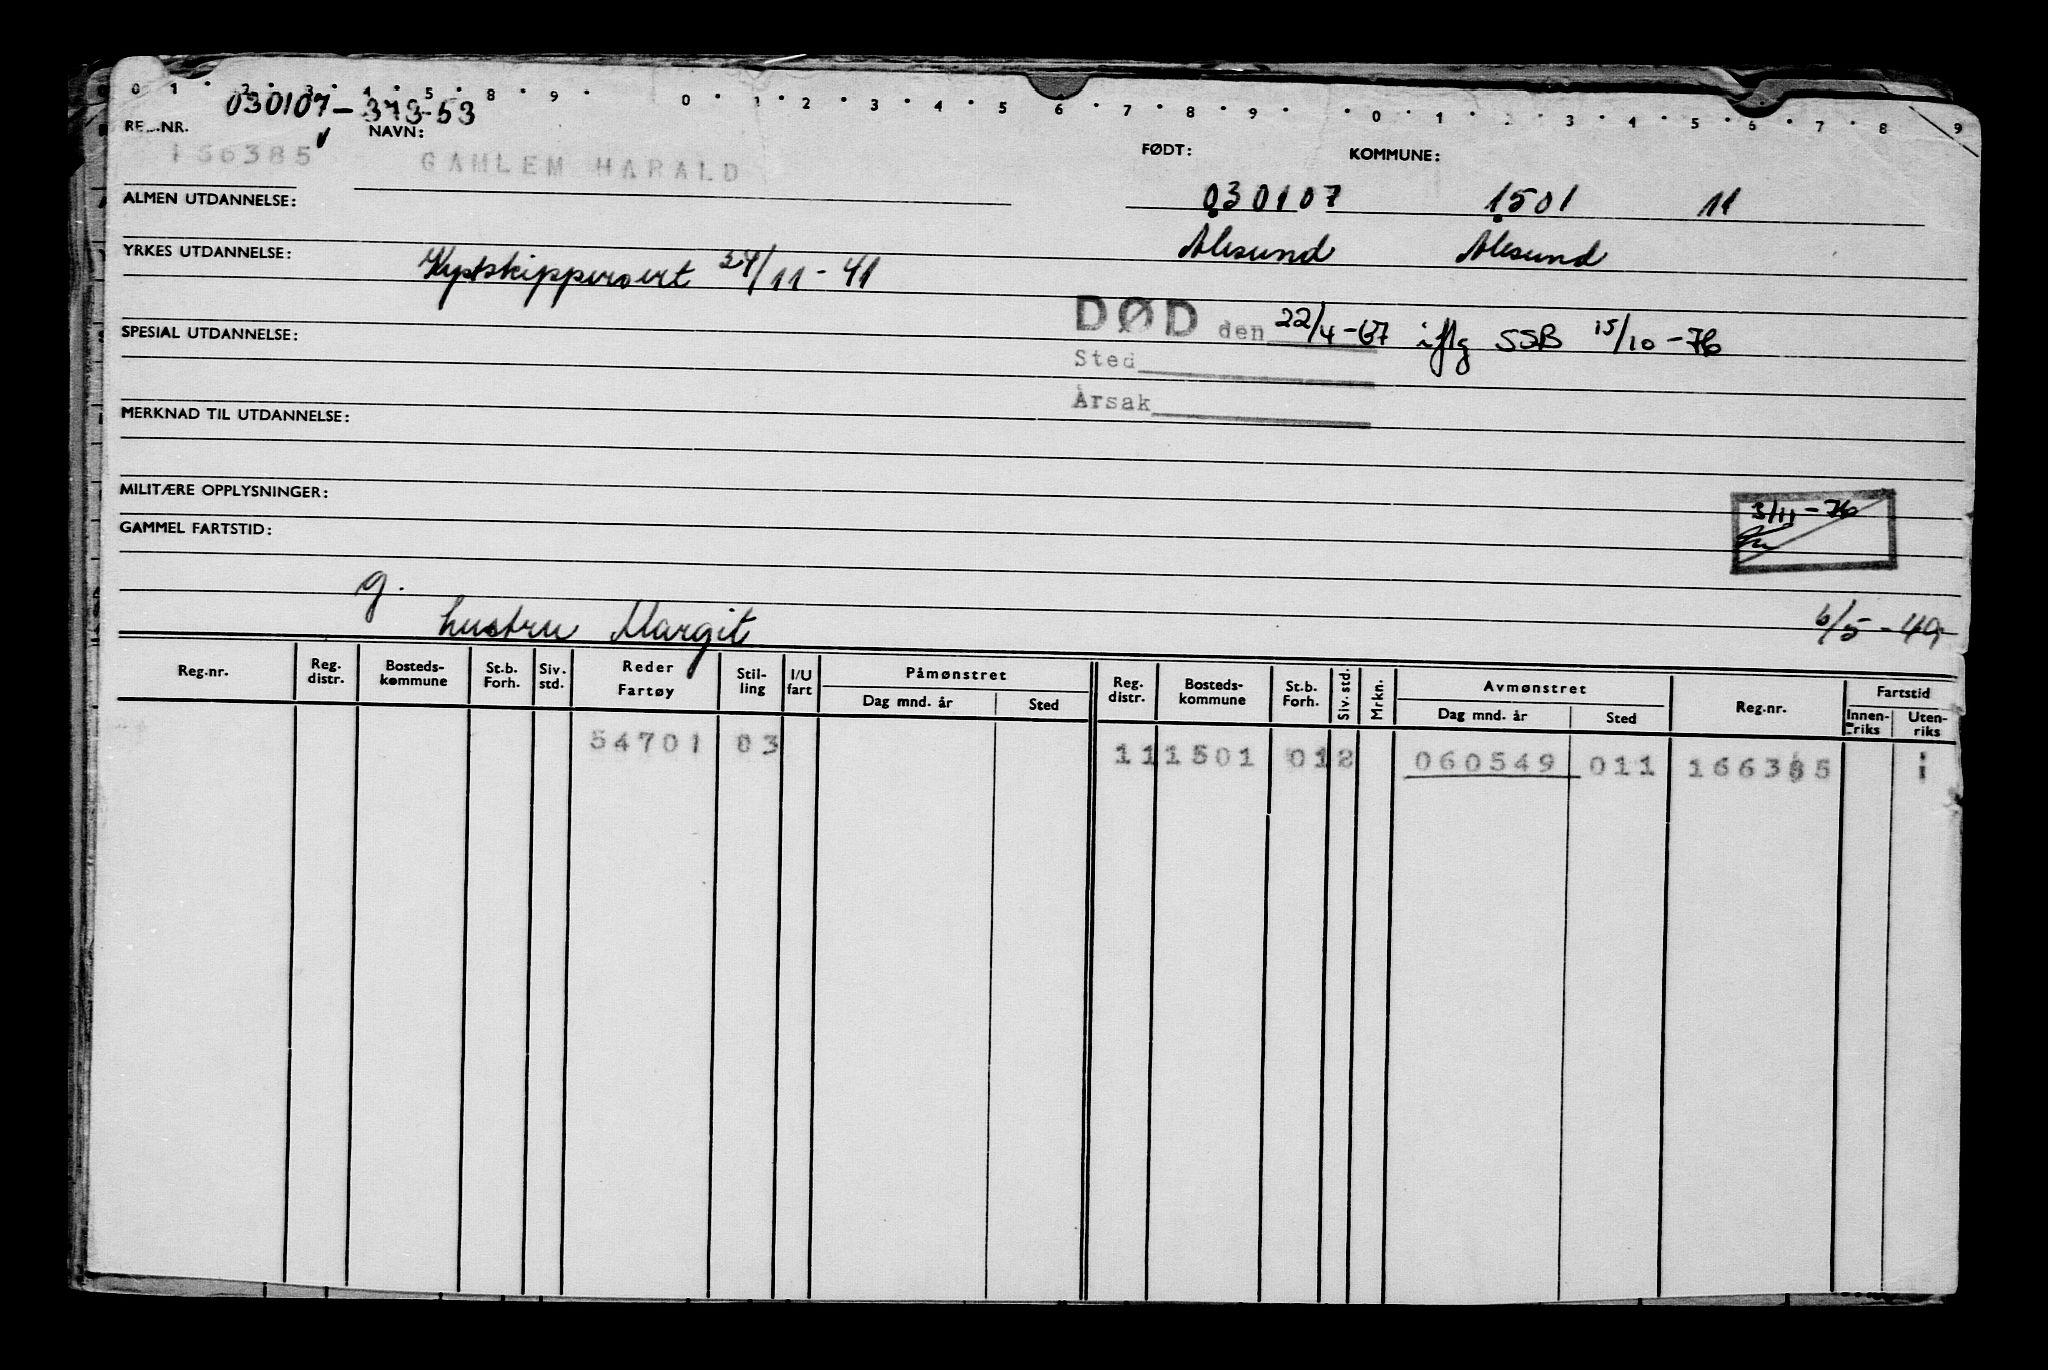 0 1 2 3 4 5 8 9 0 1 2 3 4 5 6 7 8 9 0 1 3 4 5 6 7 8 9
030107-373-53
REG.NR. NAVN: FØDT: KOMMUNE:
166385 GAMLEM HARALD
030107 1501 11
ALMEN UTDANNELSE:
Ålesund Ålesund
YRKES UTDANNELSE: Kystskippersert 24/11-41
DØD den 22/4-67 iflg SSB 15/10-76
SPESIAL UTDANNELSE:
Sted
Årsak
MERKNAD TIL UTDANNELSE:
MILITÆRE OPPLYSNINGER:
3/11-76
GAMMEL FARTSTID:
g.
hustru Margit 6/5-49
Reg.nr. Reg. distr. Bosteds-kommune St.b. Forh. Siv. std. Reder Fartøy Stil-ling I/U fart Påmønstret Dag mnd. år Sted Reg. distr. Bosteds-kommune St.b. Forh. Siv. std. Mrkn. Avmønstret Dag mnd. år Sted Reg.nr. Fartstid Innen-riks Uten-riks
54701 83 11 1501 01 2 060549 011 166385